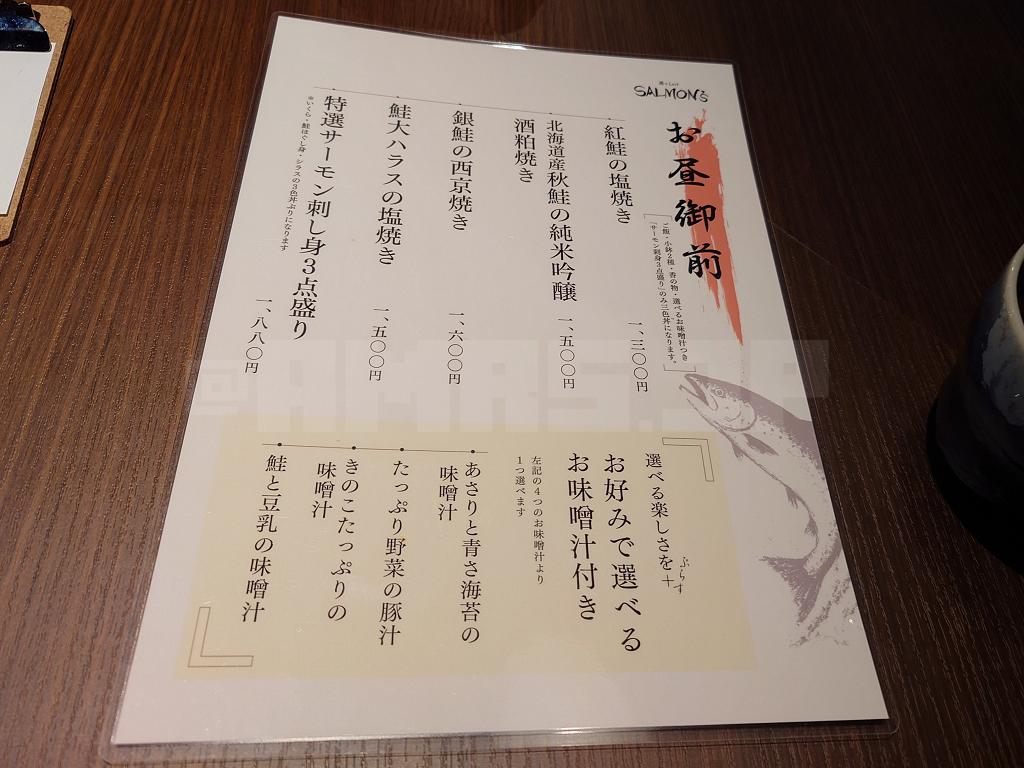 SALMON's
お昼御前
ご飯・小鉢2種・香の物・選べるお味噌汁つき
「サーモン刺身3点盛り」のみ三色丼になります。
紅鮭の塩焼き
一、三〇〇円
北海道産秋鮭の純米吟醸
酒粕焼き
一、五〇〇円
銀鮭の西京焼き
一、六〇〇円
鮭大ハラスの塩焼き
一、五〇〇円
特選サーモン刺し身3点盛り
※いくら・鮭ほぐし身・シラスの3色丼ぶりになります
一、八八〇円
選べる楽しさを+
ぷらす
お好みで選べる
お味噌汁付き
左記の4つのお味噌汁より
1つ選べます
あさりと青さ海苔の
味噌汁
たっぷり野菜の豚汁
きのこたっぷりの
味噌汁
鮭と豆乳の味噌汁
@AMAS.JP